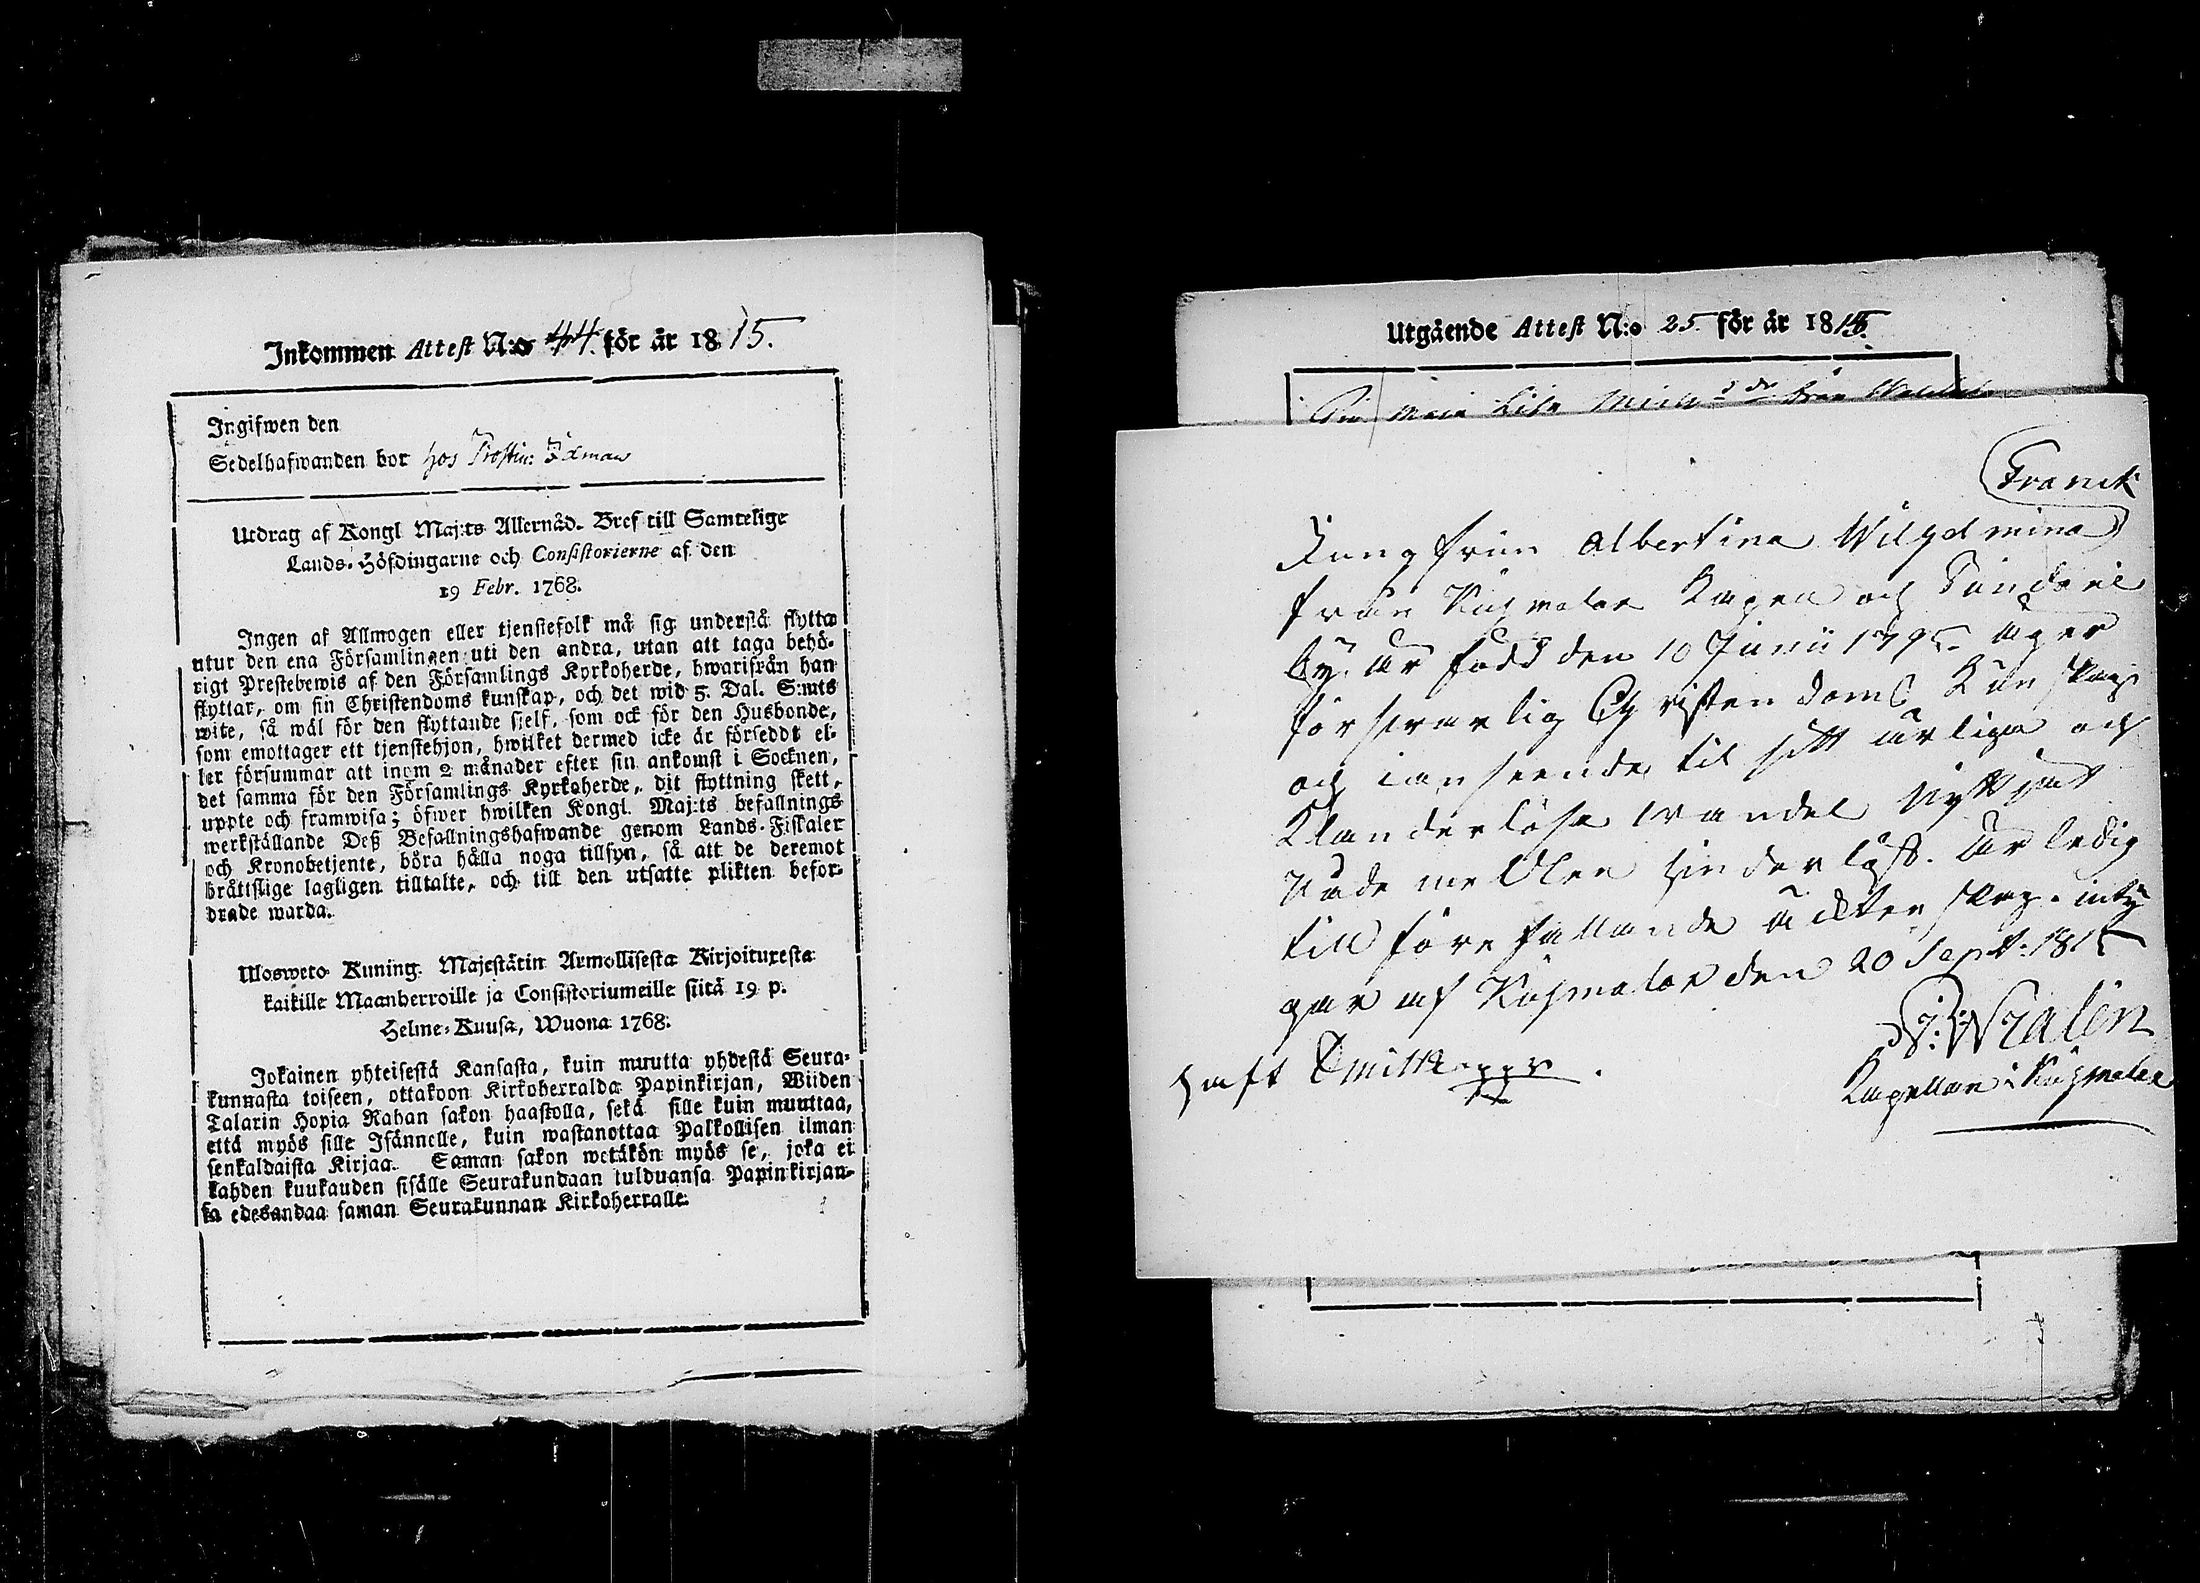 Inkommen Attest N:o 44. för år 1815.
Ingifwen den
Sedelhafwanden bor hos Prostin:
Utdrag af Kongl Maj:ts Allernåd. Bref till Samtelige
Lands-Höfdingarne och Consistorierne af den
19 Febr. 1768.
Ingen af Allmogen eller tjenstefolk må sig understå flytta
utur den ena Församlingen uti den andra, utan att taga behö-
rigt Prestebewis af den Församlings Kyrkoherde, hwarifrån han
flyttar, om sin Christendoms kunskap, och det wid 5. Dal. S:mts
wite, så wäl för den flyttande sjelf, som ock för den Husbonde,
som emottager ett tjenstehjon, hwilket dermed icke är förseddt el-
ler försummar att inom 2 månader efter sin ankomst i Socknen,
det samma för den Församlings Kyrkoherde, dit flyttning skett,
uppte och framwisa; öfwer hwilken Kongl. Maj:ts befallnings
werkställande Deß Befallningshafwande genom Lands-Fiskaler
och Kronobetjente, böra hålla noga tillsyn, så att de deremot
bråttslige lagligen tilltalte, och till den utsatte plikten befor-
drade warda.
Ulosweto Kuning. Majestätin Armollisesta Kirjoituxesta
kaikille Maanherroille ja Consistoriumeille siitä 19 p.
Helme-Kuusa, Wuona 1768.
Jokainen yhteisestä Kansasta, kuin muutta yhdestä Seura-
kunnasta toiseen, ottakoon Kirkoherralda Papinkirjan, Wiiden
Talarin Hopia Rahan sakon haastolla, sekä sille kuin muuttaa,
että myös sille Isännelle, kuin wastanottaa Palkollisen ilman
senkaldaista Kirjaa. Saman sakon wetäkön myös se, joka ei
kahden kuukauden sisälle Seurakundaan tulduansa Papinkirjan-
sa edesandaa saman Seurakunnan Kirkoherralle.
Utgående Attest N:o 25. för år 1815.
Franck
Jungfrun Albertina Wilhelmina
från Kapell och
by. är född den 10 Junii äger
förswarlig Christendoms Kunskap
och i anseende til sitt ärliga och
Klanderlösa wandel nyttjat
Nådemedlen hinderlöst. är ledig
till förefallande äcktenskap. inty
gar af den 20 Sept: 1815
Kapellan i
haft Smittkoppor.